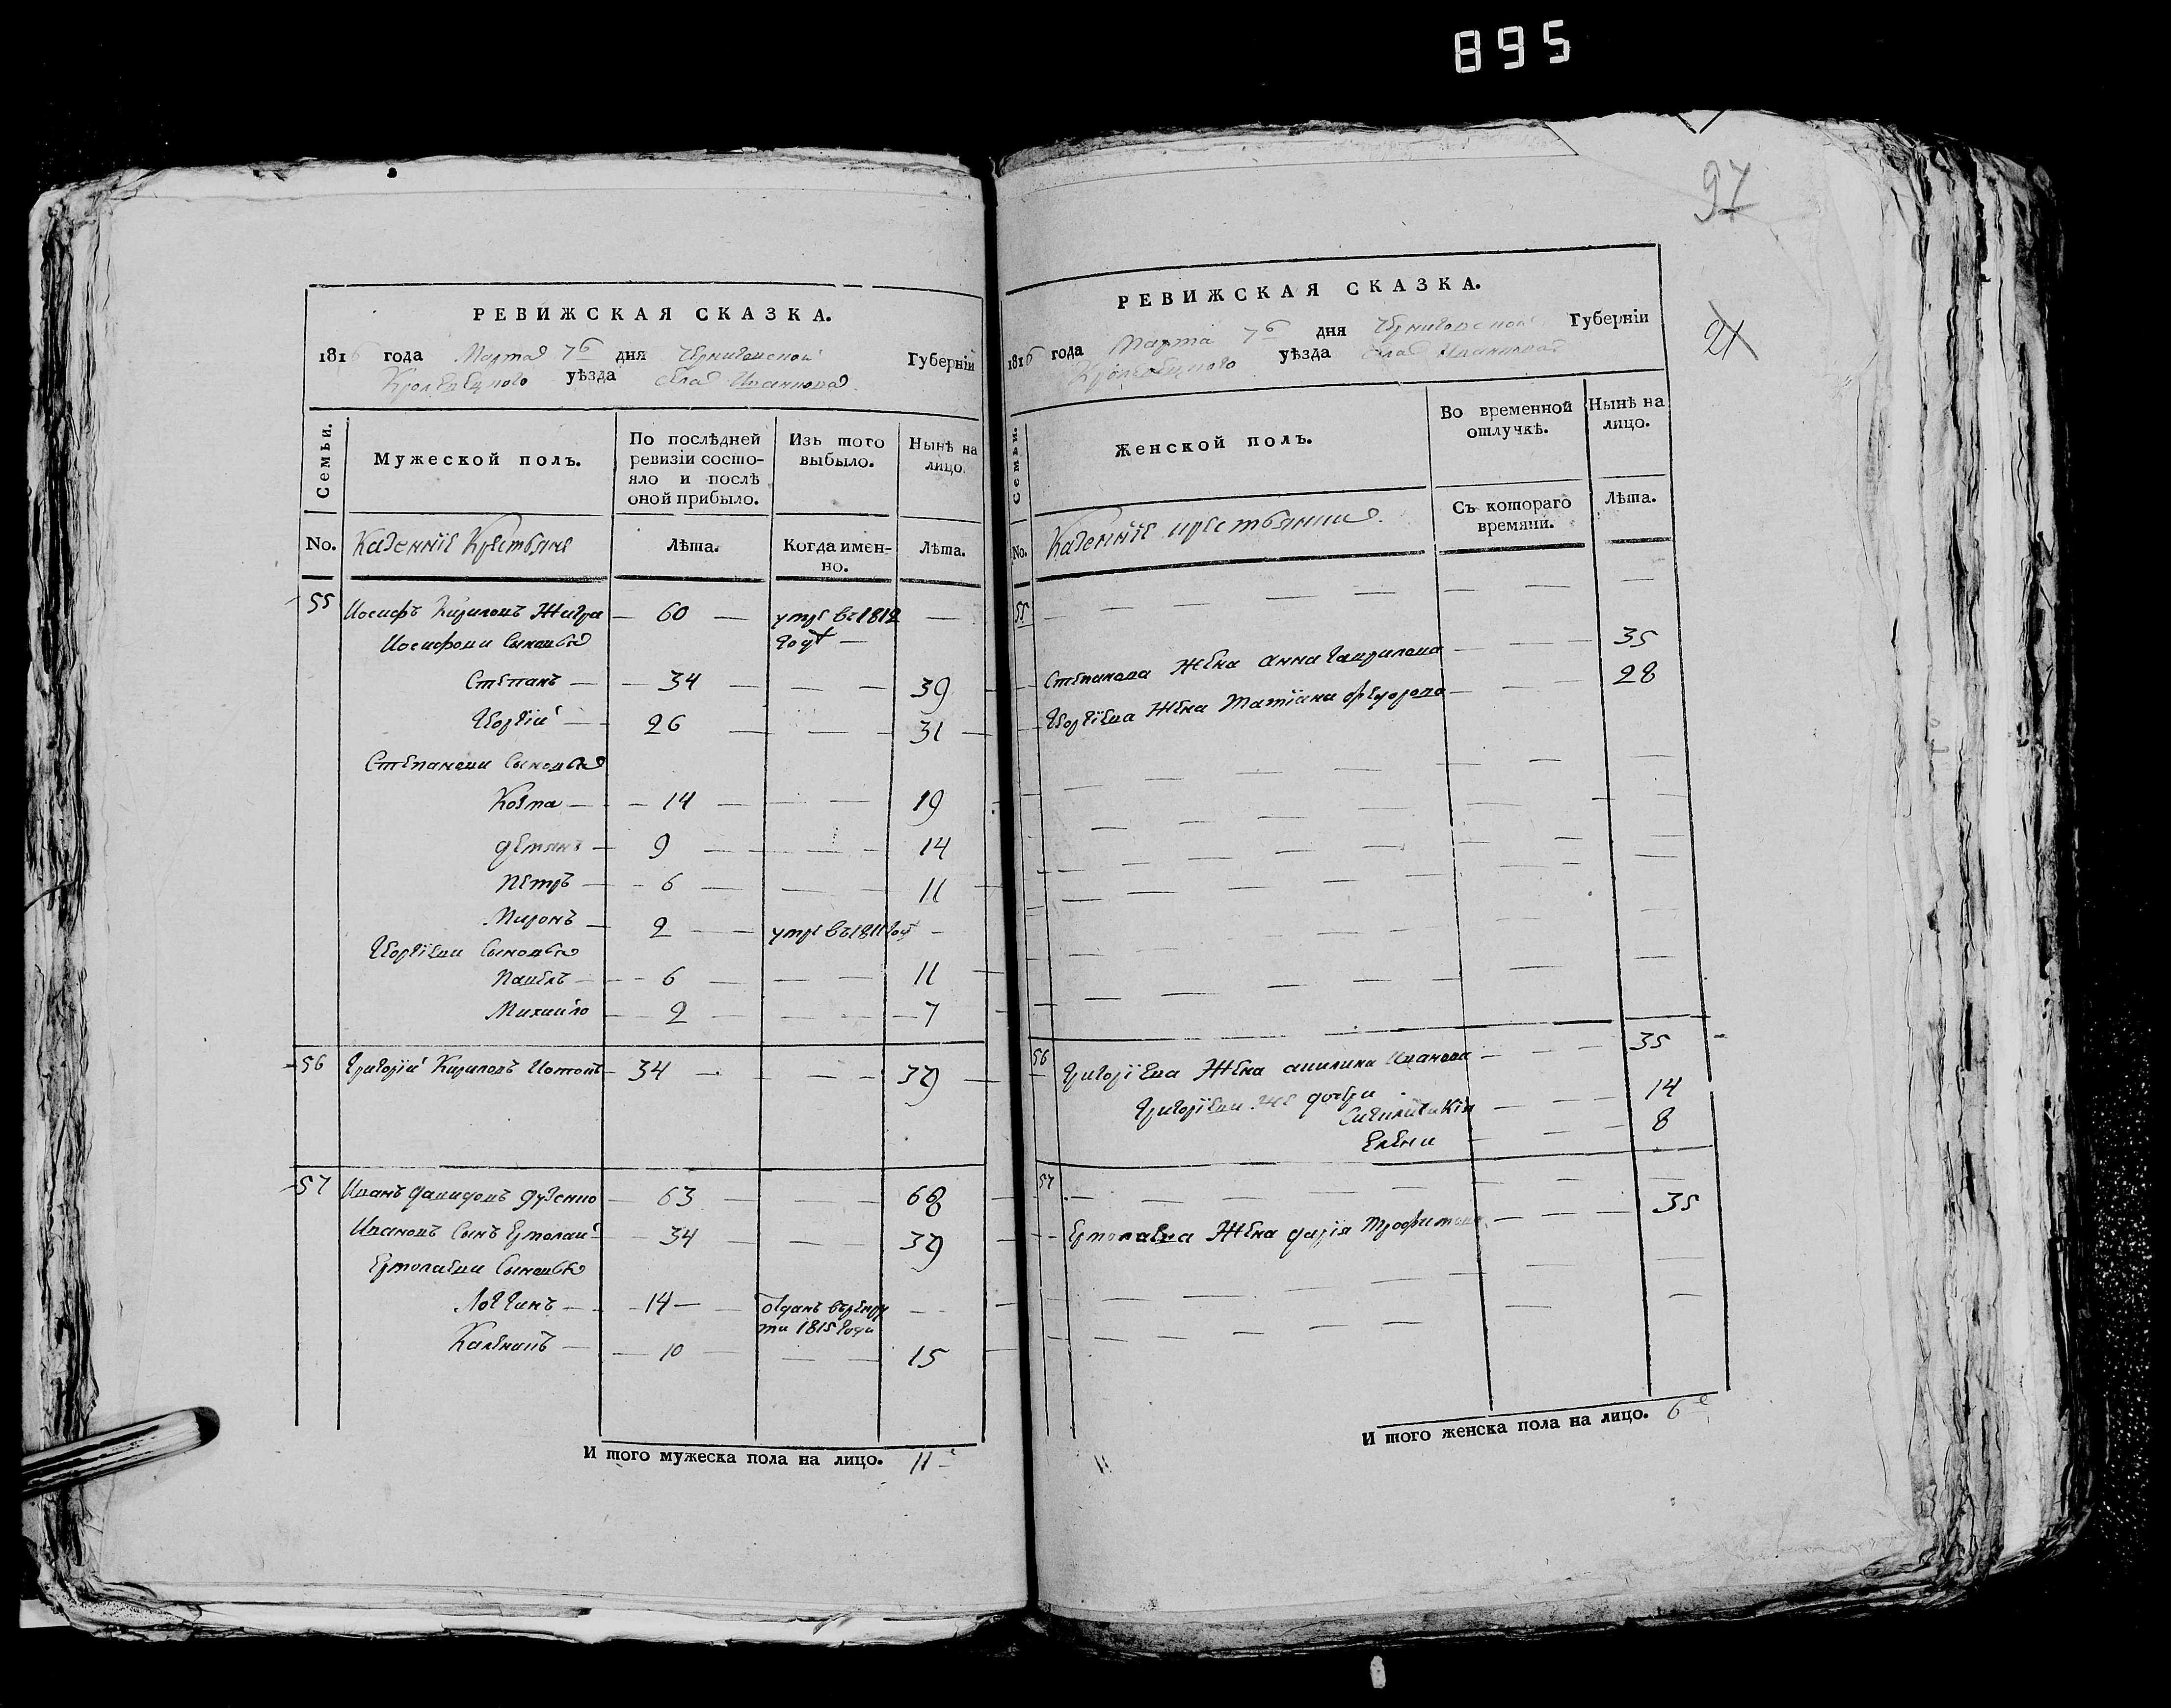 895
97
21
РЕВИЖСКАЯ СКАЗКА.
1816 года Марта 7го дня Черниговской Губерніи
Кролевецкого уѣзда села Иванкова
Семьи.
Мужеской полъ.
По послѣдней ревизіи состояло и послѣ оной прибыло.
Изъ того выбыло.
Нынѣ на лицо.
No. Казенніе Крестьяне
Лѣта.
Когда именно.
Лѣта.
55 Иосифъ Кириловъ — 60 — умре въ 1812 годѣ —
Иосифови сыновья
Степанъ — 34 — — — 39
Георгій — 26 — — — 31
Степанови сыновья
Козма — 14 — — — 19
Демянъ — 9 — — — 14
Петръ — 6 — — — 11
Миронъ — 2 — умре въ 1811 год —
Георгіеви сыновья
Павелъ — 6 — — — 11
Михайло — 2 — — — 7
56 Григорій Кириловъ — 34 — — — 39
57 Иванъ Давидовъ — 63 — — — 68
Ивановъ сынъ Ермолай — 34 — — — 39
Ермолаеви сыновья
Логгинъ — 14 — отданъ въ рекрути 1815 года — —
— 10 — — — 15
И того мужеска пола на лицо. 11
РЕВИЖСКАЯ СКАЗКА.
1816 года Марта 7го дня Черниговской Губерніи
Кролевецкого уѣзда села Иванкова
Семьи.
Женской полъ.
Во временной отлучкѣ.
Нынѣ на лицо.
No. Казенніе крестьянки.
Съ котораго времяни.
Лѣта.
55
Степанова жена Анна Гаврилова — — — 35
Георгіева жена Татіана Федорова — — — 28
56 Григоріева жена Акилина Иванова — — — 35
Григоріеви же дочери
— — — 14
Елена — — — 8
57
Ермолаева жена Дарія Трофимова — — — 35
И того женска пола на лицо. 6